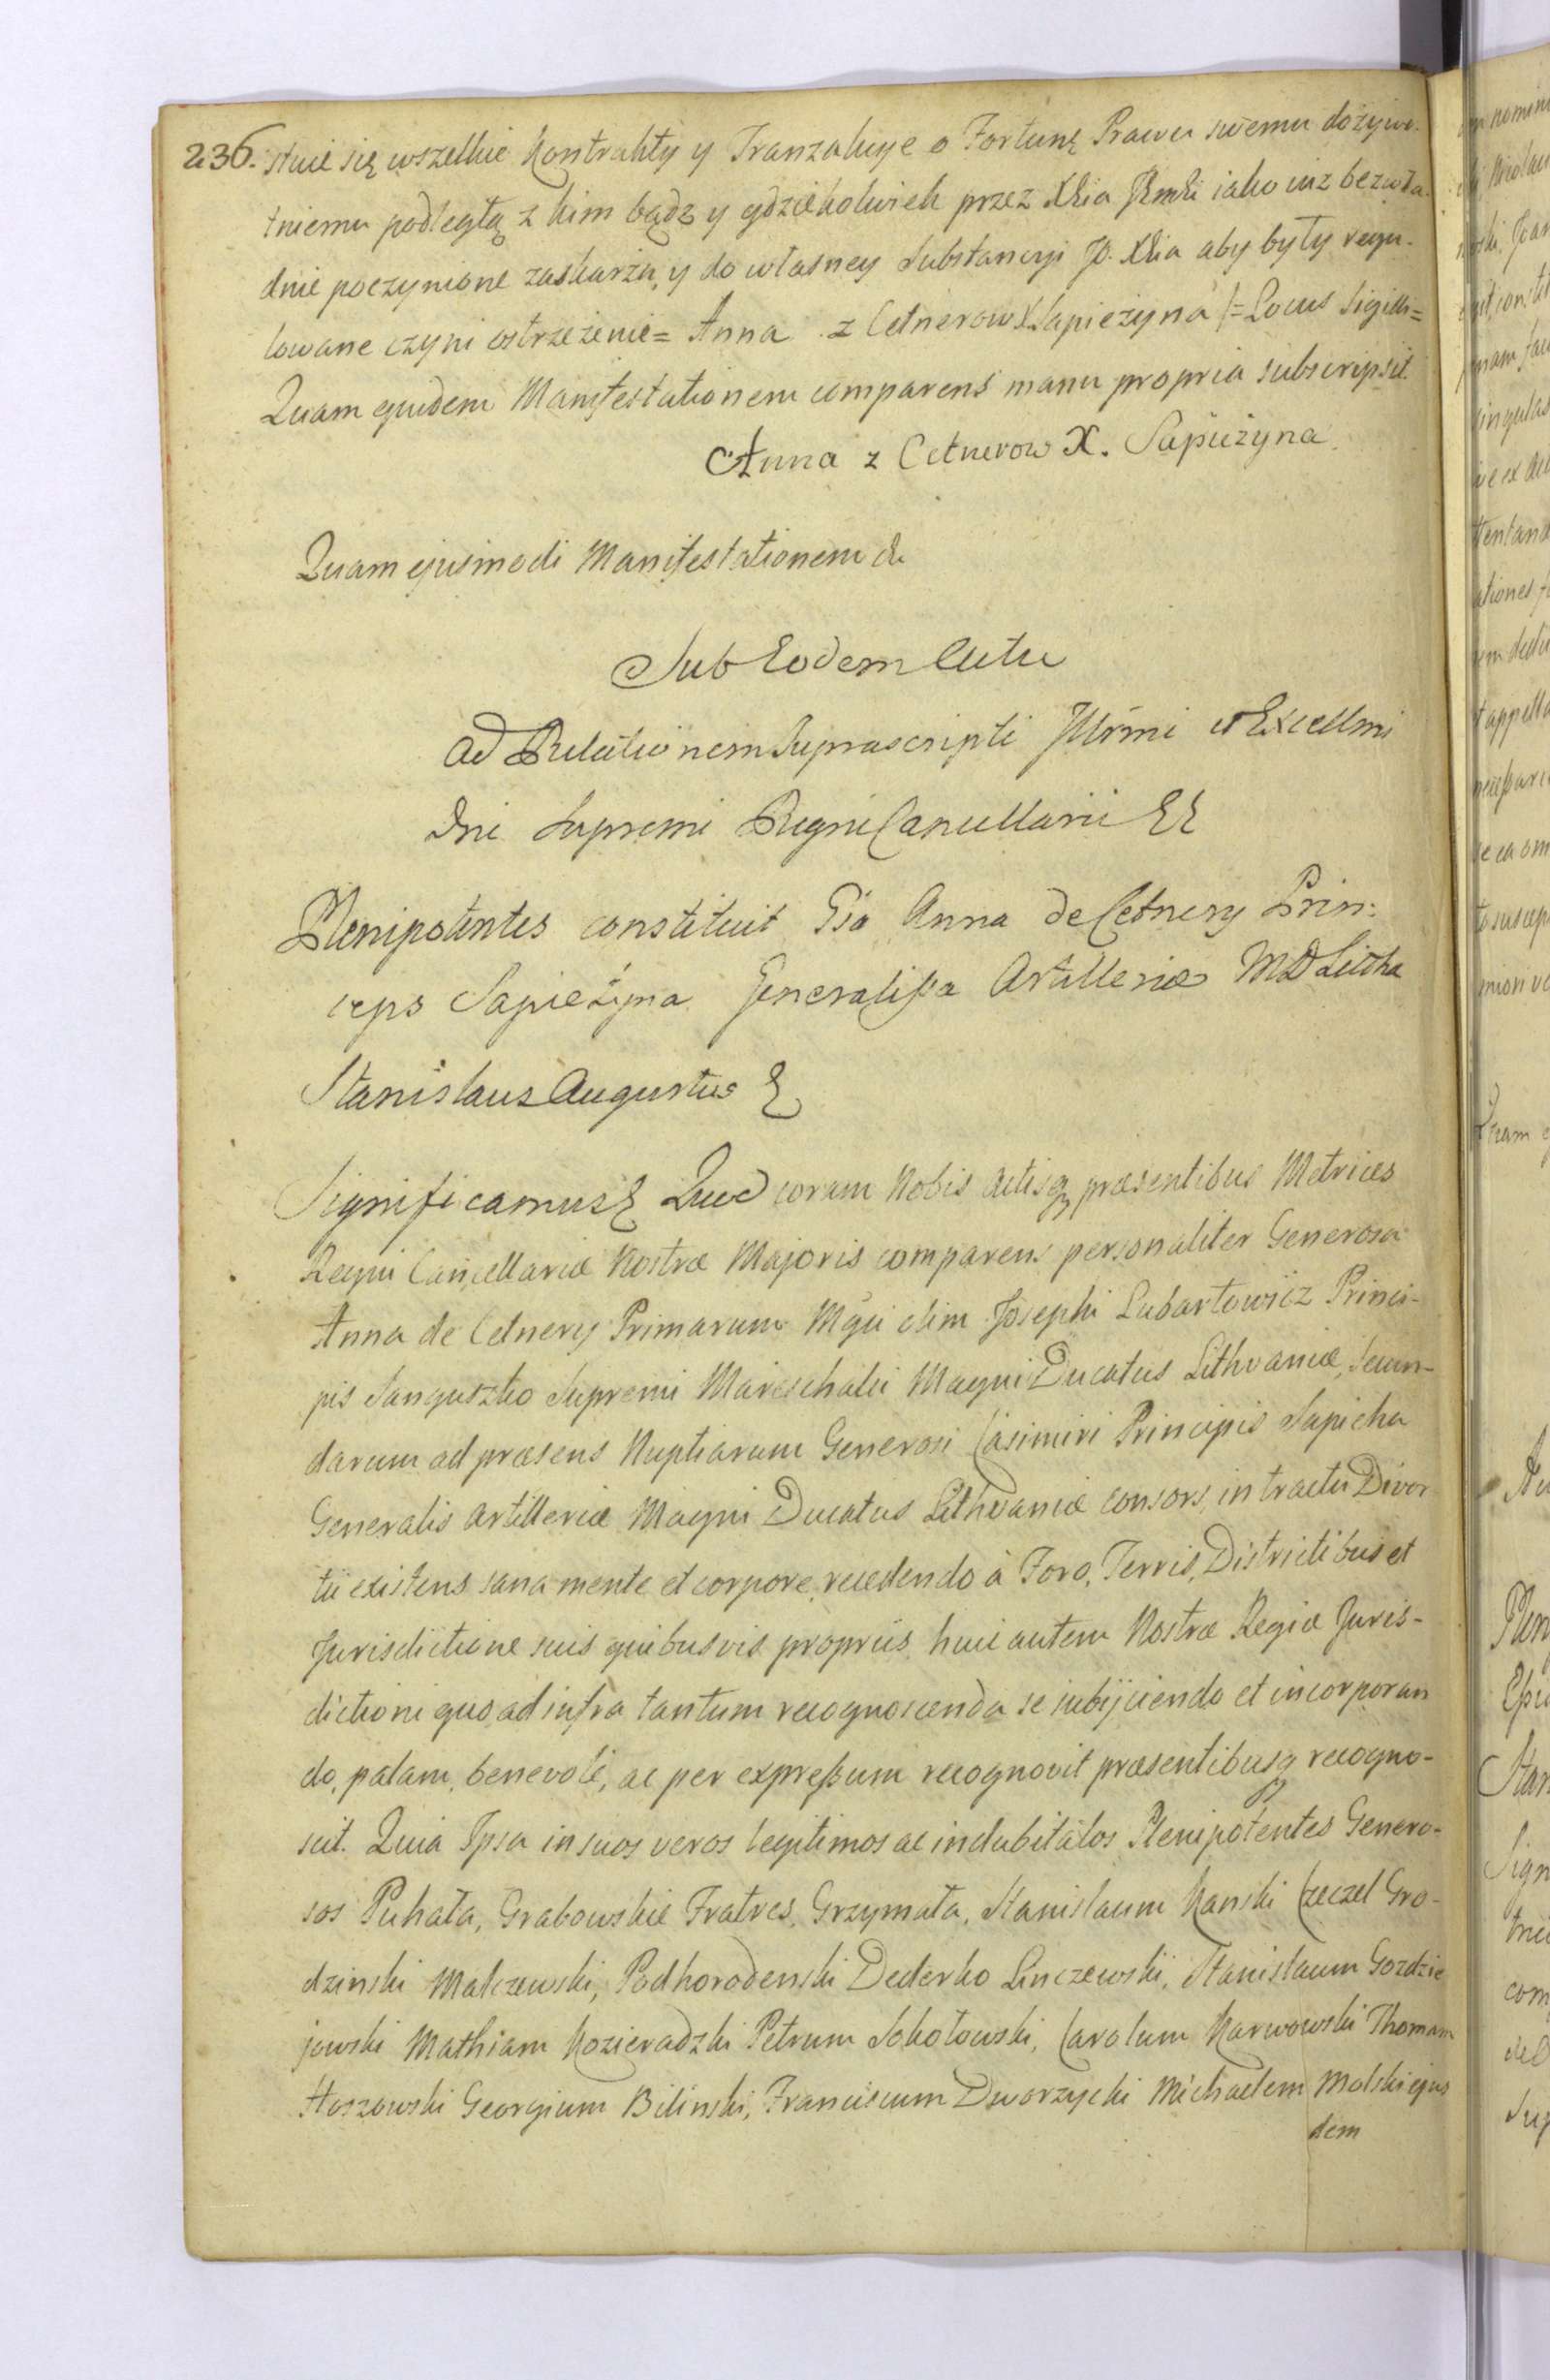 236. stuie się wszelkie Kontrakty y Tranzakcye o Fortunę Prawu swemu dożywo-
tniemu podległą z kim bądz y gdziekolwiek przez Xcia Jmci iako iuż bezwła-
dnie poczynione zaskarża, y do własney Substancyi Jo. Xcia aby były regu-
lowane czyni ostrzeżenie = Anna z Cetnerow X Sapieżyna /= Locus Sigilli =
Quam quidem Manifestationem comparens manu propria subscripsit.
Anna z Cetnerow X. Sapieżyna.
Quam ejusmodi Manifestationem &
Sub Eodem Actu
Ad Relationem Suprascripti Jllrmi et Excellmi
Dni Supremi Regni Cancellarii &&
Plenipotentes constituit Gsa Anna de Cetnery Prin:
ceps Sapieżyna Generalissa Artilleriæ MD Litthæ
Stanislaus Augustus &
Significamus & Quod coram Nobis Actisq3 præsentibus Metrices
Regni Cancellariæ Nostræ Majoris comparens personaliter Generosa
Anna de Cetnery Primarum Mgci olim Josephi Lubartowicz Princi-
pis Sanguszko Supremi Mareschalci Magni Ducatus Lithvaniæ, Secun-
darum ad præsens Nuptiarum Generosi Casimiri Principis Sapieha
Generalis Artilleriæ Magni Ducatus Lithvaniæ consors, in tractu Divor
tii existens sana mente et corpore, recedendo à Foro, Terris, Districtibus et
Jurisdictione suis quibusvis propriis, huic autem Nostræ Regiæ Juris-
dictioni quo ad infra tantum recognoscenda se subijciendo et incorporan
do, palam, benevolé, ac per expressum recognovit præsentibusq3 recogno-
scit. Quia Ipsa in suos veros legitimos ac indubitatos Plenipotentes Genero-
sos Puhała, Grabowskie Fratres, Grzymała, Stanislaum Kanski Czeczel Gro-
dzinski Malczewski, Podhorodenski Dederko Linczewski, Stanislaum Gozdzie
jewski Mathiam Kozieradzki Petrum Sokołowski, Carolum Karwowski Thomam
Hoszowski Georgium Bilinski, Franciscum Dworzycki Michaelem Molski ejus
dem